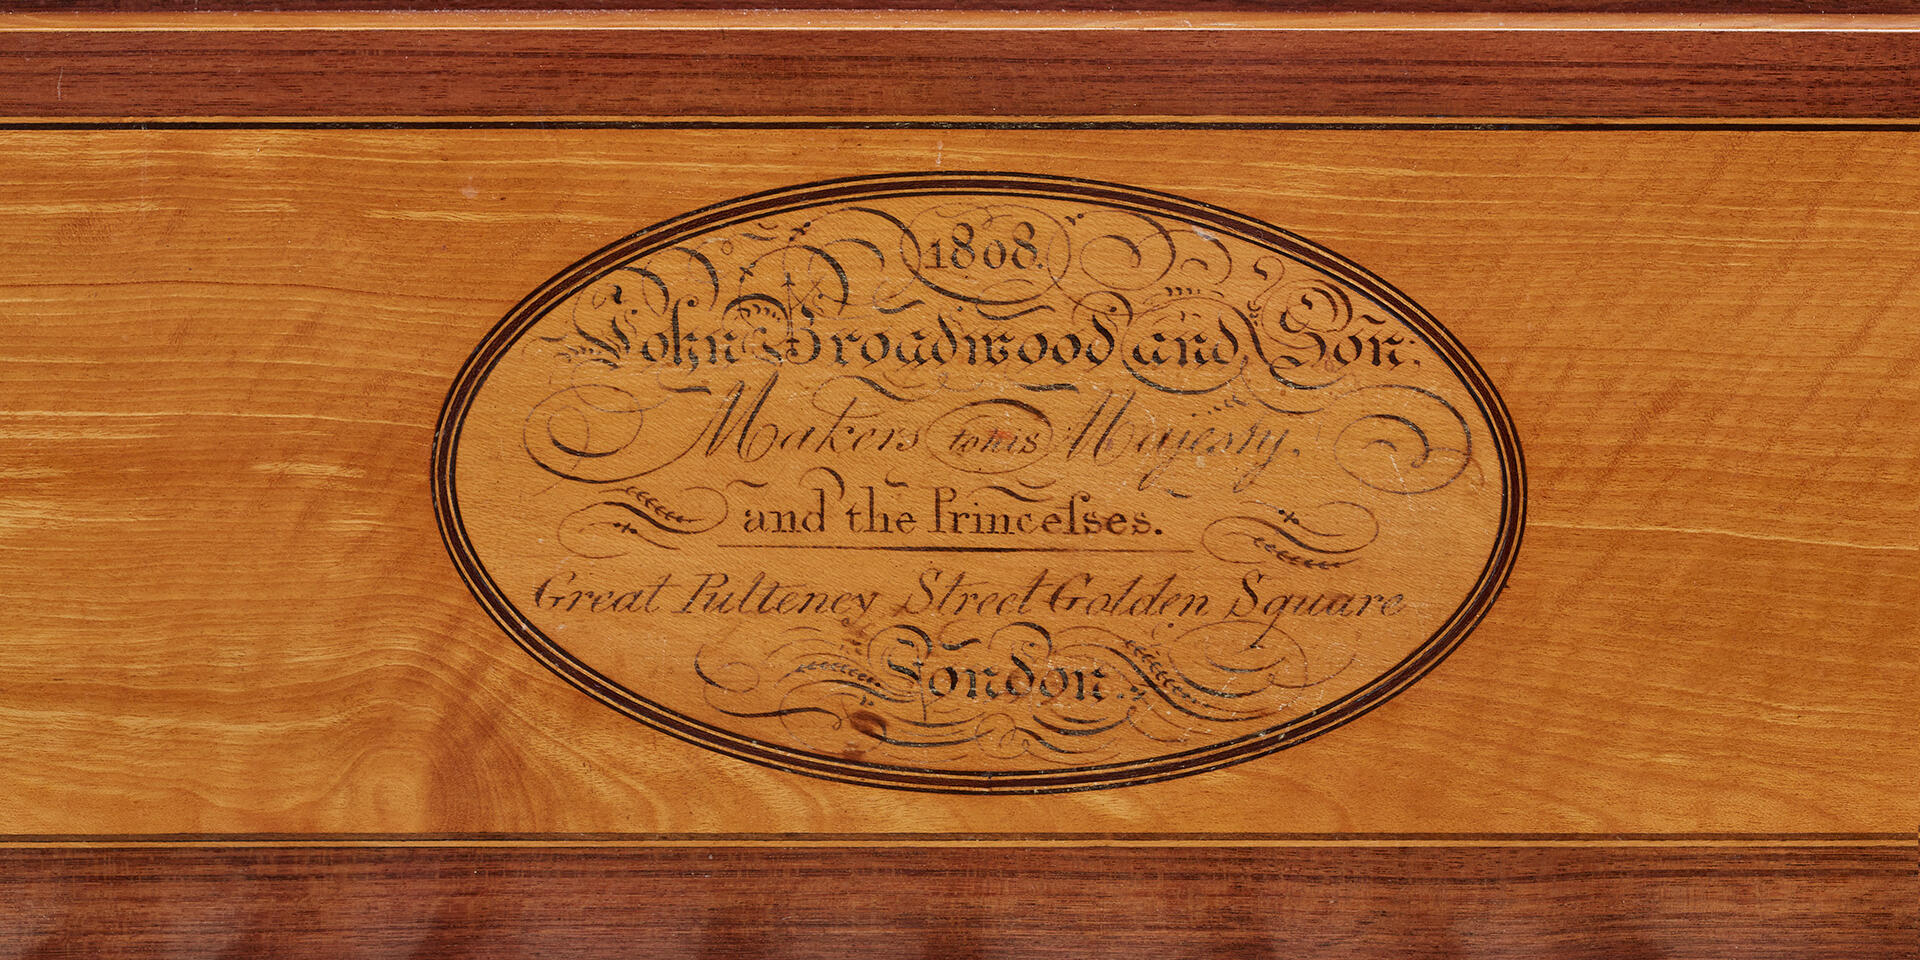 1808.
John Broadwood and Son:
Makers to his Majesty,
and the Princeſses.
Great Pulteney Street Golden Square
London.